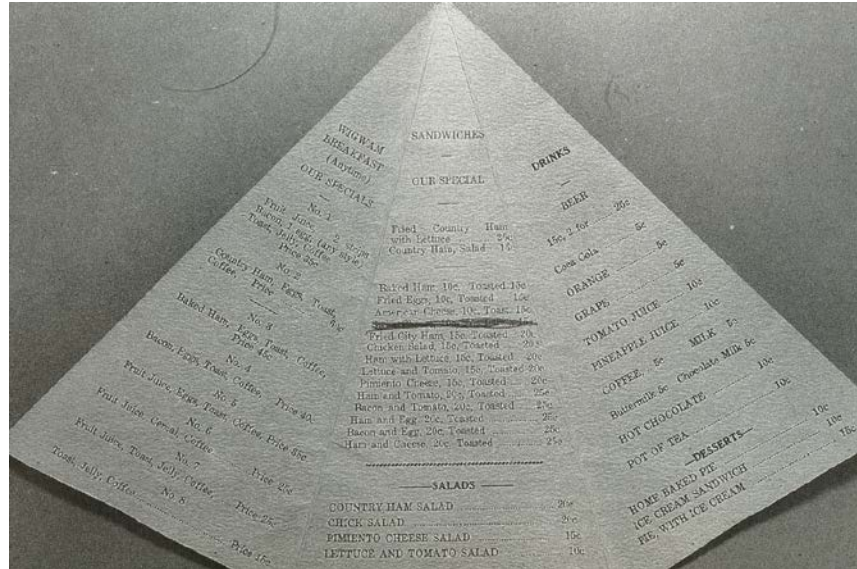 WIGWAM
BREAKFAST
(Anytime)
OUR SPECIALS
No. 1
Fruit Juice, 2 strips
Bacon, 1 egg (any style)
Toast, Jelly, Coffee
Price 35c
No. 2
Country Ham, Eggs, Toast,
Coffee, Price 50c
No. 3
Baked Ham, Eggs, Toast, Coffee,
Price 45c
No. 4
Bacon, Eggs, Toast Coffee, Price 40c
No. 5
Fruit Juice, Eggs, Toast, Coffee, Price 35c
No. 6
Fruit Juice, Cereal, Coffee Price 25c
No. 7
Fruit Juice, Toast, Jelly, Coffee, Price 25c
No. 8
Toast, Jelly, Coffee Price 15c
SANDWICHES
OUR SPECIAL
Fried Country Ham
with Lettuce 25c
Country Ham, Salad 15c
Baked Ham, 10c, Toasted 15c
Fried Eggs, 10c, Toasted 15c
American Cheese, 10c, Toast. 15c
Fried City Ham, 15c, Toasted 20c
Chicken Salad, 15c, Toasted 20c
Ham with Lettuce, 15c, Toasted 20c
Lettuce and Tomato, 15c, Toasted 20c
Pimiento Cheese, 15c, Toasted 20c
Ham and Tomato, 20c, Toasted 25c
Bacon and Tomato, 20c, Toasted 25c
Ham and Egg, 20c, Toasted 25c
Bacon and Egg, 20c, Toasted 25c
Ham and Cheese, 20c, Toasted 25c
SALADS
COUNTRY HAM SALAD 20c
CHICK SALAD 20c
PIMIENTO CHEESE SALAD 15c
LETTUCE AND TOMATO SALAD 10c
DRINKS
BEER
15c, 2 for 25c
Coca Cola 5c
ORANGE 5c
GRAPE 5c
TOMATO JUICE 10c
PINEAPPLE JUICE 10c
COFFEE 5c MILK 5c
Buttermilk 5c Chocolate Milk 5c
HOT CHOCOLATE 10c
POT OF TEA 10c
—DESSERTS—
HOME BAKED PIE 10c
ICE CREAM SANDWICH 10c
PIE, WITH ICE CREAM 15c